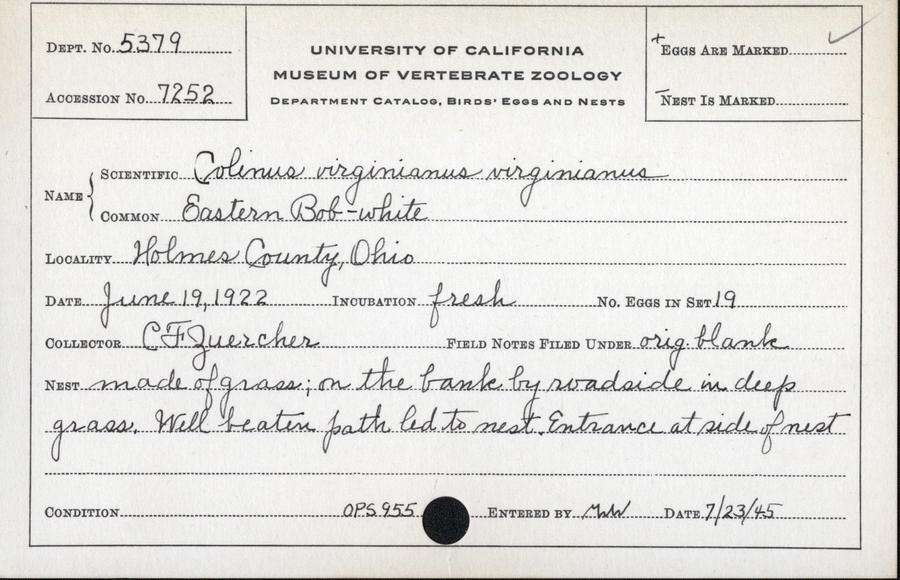 DEPT. No. 5379
ACCESSION No. 7252
UNIVERSITY OF CALIFORNIA
MUSEUM OF VERTEBRATE ZOOLOGY
DEPARTMENT CATALOG, BIRDS' EGGS AND NESTS
+ EGGS ARE MARKED ✓
– NEST IS MARKED
NAME
SCIENTIFIC Colinus virginianus virginianus
COMMON Eastern Bob-white
LOCALITY Holmes County, Ohio
DATE June 19, 1922 INCUBATION fresh No. EGGS IN SET 19
COLLECTOR C F Zuercher FIELD NOTES FILED UNDER orig. blank
NEST made of grass; on the bank by roadside in deep
grass. Well beaten path led to nest. Entrance at side of nest
CONDITION OPS 955 ENTERED BY MW DATE 7/23/45